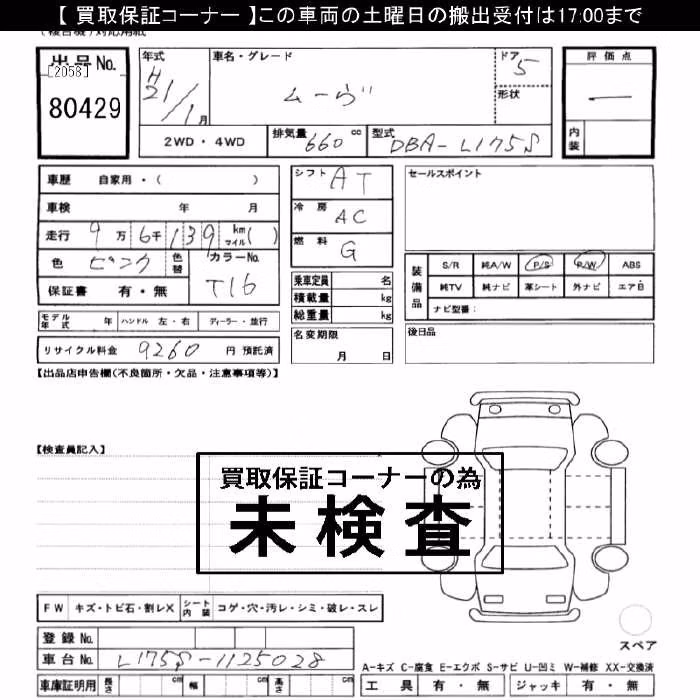 【 買取保証コーナー 】この車両の土曜日の搬出受付は17:00まで
出品No.
[2058]
80429
年式
H21/1月
車名・グレード
ムーヴ
ドア 5
形状
評価点
—
内装
2WD・4WD
排気量 660 cc
型式 DBA-L175S
車歴 自家用・( )
車検 年 月
走行 9万6千139 km マイル( )
色 ピンク
色替
カラーNo. T16
保証書 有・無
シフト AT
冷房 AC
燃料 G
乗車定員 名
積載量 kg
総重量 kg
セールスポイント
装備品
S/R 純A/W P/S P/W ABS
純TV 純ナビ 革シート 外ナビ エアB
ナビ型番:
モデル年式 年 ハンドル 左・右 ディーラー・並行
名変期限 月 日
後日品
リサイクル料金 9260 円 預託済
【出品店申告欄(不良箇所・欠品・注意事項等)】
【検査員記入】
買取保証コーナーの為
未検査
FW キズ・トビ石・割レX シート内装 コゲ・穴・汚レ・シミ・破レ・スレ
登録No.
車台No. L175S-1125028
スペア
A-キズ C-腐食 E-エクボ S-サビ U-凹ミ W-補修 XX-交換済
車庫証明用 長さ cm 幅 cm 高さ cm
工具 有・無 ジャッキ 有・無